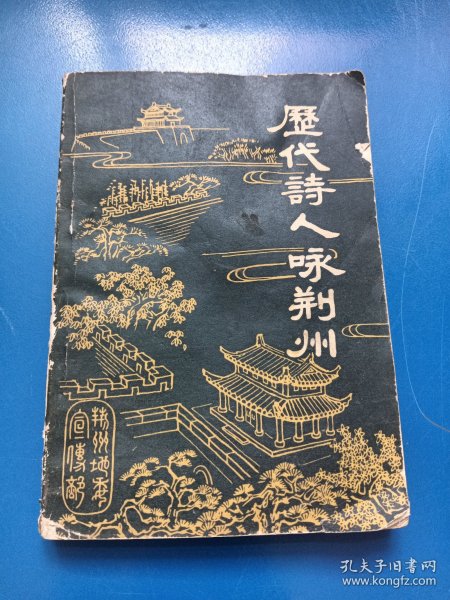 歷代詩人咏荆州
荆州地委
宣傳部
孔夫子旧书网
www.kongfz.com